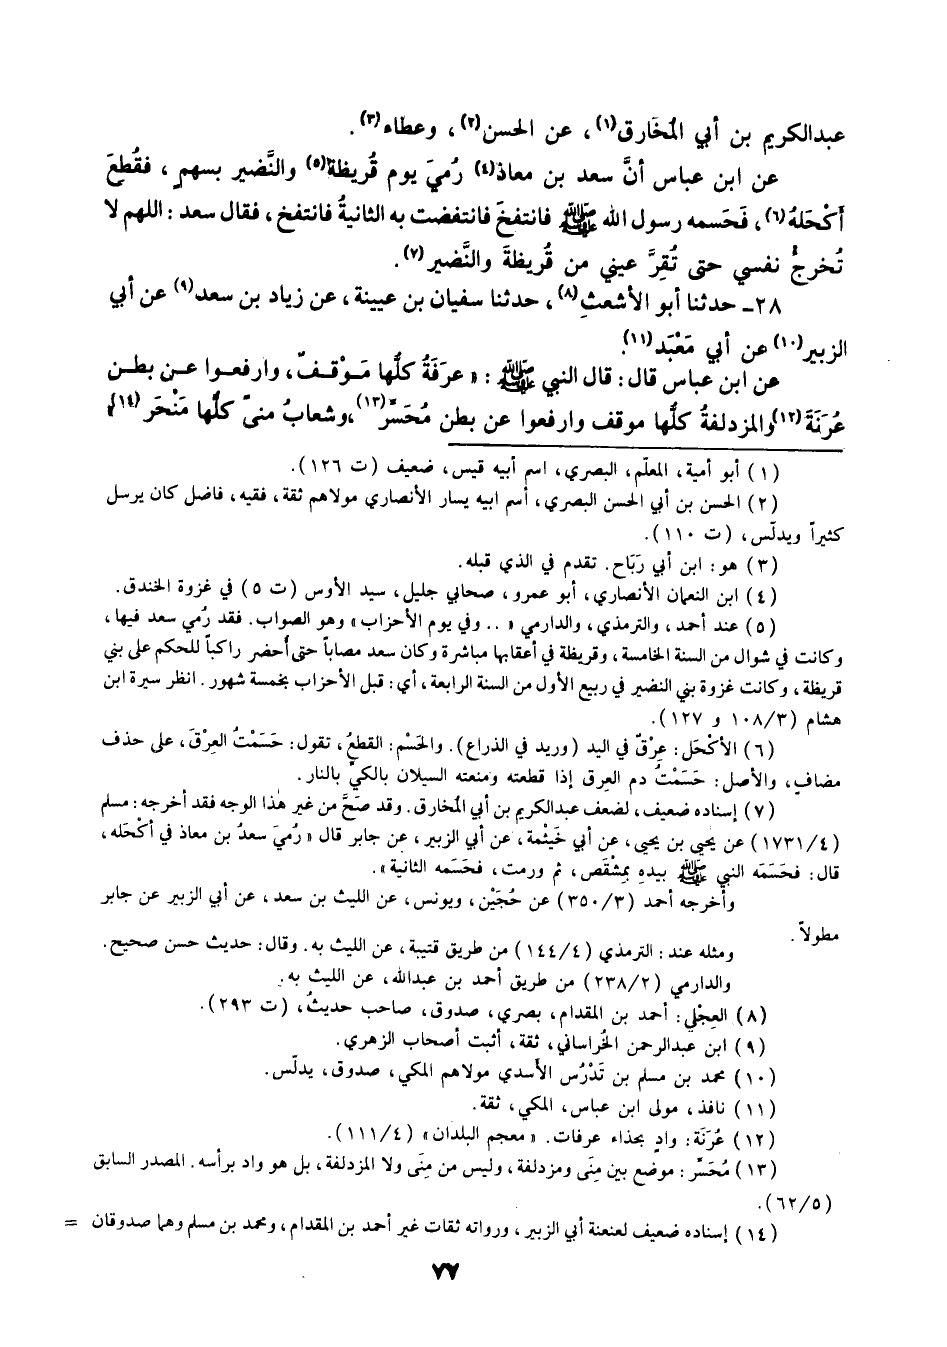 عبدالكريم بن أبي المُخَارق(١)، عن الحسن(٢)، وعطاء(٣).
عن ابن عباس أنَّ سعد بن معاذ(٤) رُميَ يوم قُريظة(٥) والنَّضير بسهمٍ، فقُطعَ
أَكْحَلهُ(٦)، فَحَسمه رسول الله ﷺ فانتفخَ فانتفضت به الثانيةُ فانتفخ، فقال سعد: اللهم لا
تُخرجْ نفسي حتى تُقِرَّ عيني من قُريظةَ والنَّضير(٧).
٢٨ـ حدثنا أبو الأشعثِ(٨)، حدثنا سفيان بن عيينة، عن زياد بن سعد(٩) عن أبي
الزبير(١٠) عن أبي مَعْبَد(١١).
عن ابن عباس قال: قال النبي ﷺ: «عرَفَةُ كلُّها مَوْقفٌ، وارفعوا عن بطن
عُرَنَةَ(١٢) والمزدلفةُ كلُّها موقف وارفعوا عن بطن مُحَسِّر(١٣)، وشعابُ منىً كلُّها مَنْحَر(١٤)»
(١) أبو أمية، المعلّم، البصري، اسم أبيه قيس، ضعيف (ت ١٢٦).
(٢) الحسن بن أبي الحسن البصري، أسم ابيه يسار الأنصاري مولاهم ثقة، فقيه، فاضل كان يرسل
كثيراً ويدلّس، (ت ١١٠).
(٣) هو: ابن أبي رَبَاح. تقدم في الذي قبله.
(٤) ابن النعمان الأنصاري، أبو عمرو، صحابي جليل، سيد الأوس (ت ٥) في غزوة الخندق.
(٥) عند أحمد، والترمذي، والدارمي «.. وفي يوم الأحزاب» وهو الصواب. فقد رُمي سعد فيها،
وكانت في شوال من السنة الخامسة، وقريظة في أعقابها مباشرة وكان سعد مصاباً حتى أُحضر راكباً للحكم على بني
قريظة، وكانت غزوة بني النضير في ربيع الأول من السنة الرابعة، أي: قبل الأحزاب بخمسة شهور. انظر سيرة ابن
هشام (٣/١٠٨ و ١٢٧).
(٦) الأكْحَل: عِرْقٌ في اليد (وريد في الذراع). والحَسْم: القطعُ، تقول: حَسَمْتُ العِرْقَ، على حذف
مضافٍ، والأصل: حَسَمْتُ دم العرق إذا قطعته ومنعته السيلان بالكيّ بالنار.
(٧) إسناده ضعيف، لضعف عبدالكريم بن أبي المخارق. وقد صَحَّ من غير هٰذا الوجه فقد أخرجه: مسلم
(٤/١٧٣١) عن يحيى بن يحيى، عن أبي خَيثْمة، عن أبي الزبير، عن جابر قال «رُميَ سعدُ بن معاذ في أكْحَله،
قال: فحَسَمَه النبي ﷺ بيدهِ بِمِشْقَص، ثم ورمت، فحَسَمه الثانية».
وأخرجه أحمد (٣/٣٥٠) عن حُجَيْن، ويونس، عن الليث بن سعد، عن أبي الزبير عن جابر
مطولاً.
ومثله عند: الترمذي (٤/١٤٤) من طريق قتيبة، عن الليث به. وقال: حديث حسن صحيح.
والدارمي (٢/٢٣٨) من طريق أحمد بن عبدالله، عن الليث به.
(٨) العِجْلي: أحمد بن المقدام، بصري، صدوق، صاحب حديث، (ت ٢٩٣).
(٩) ابن عبدالرحمن الخُراساني، ثقة، أثبت أصحاب الزهري.
(١٠) محمد بن مسلم بن تَدْرُس الأسدي مولاهم المكي، صدوق، يدلّس.
(١١) نافذ، مولى ابن عباس، المكي، ثقة.
(١٢) عُرَنَة: وادٍ بحذاء عرفات. «معجم البلدان» (٤/١١١).
(١٣) مُحَسِّر: موضع بين مِنَى ومزدلفة، وليس من مِنَى ولا المزدلفة، بل هو واد برأسه. المصدر السابق
(٥/٦٢).
(١٤) إسناده ضعيف لعنعنة أبي الزبير، ورواته ثقات غير أحمد بن المقدام، ومحمد بن مسلم وهما صدوقان =
٧٧